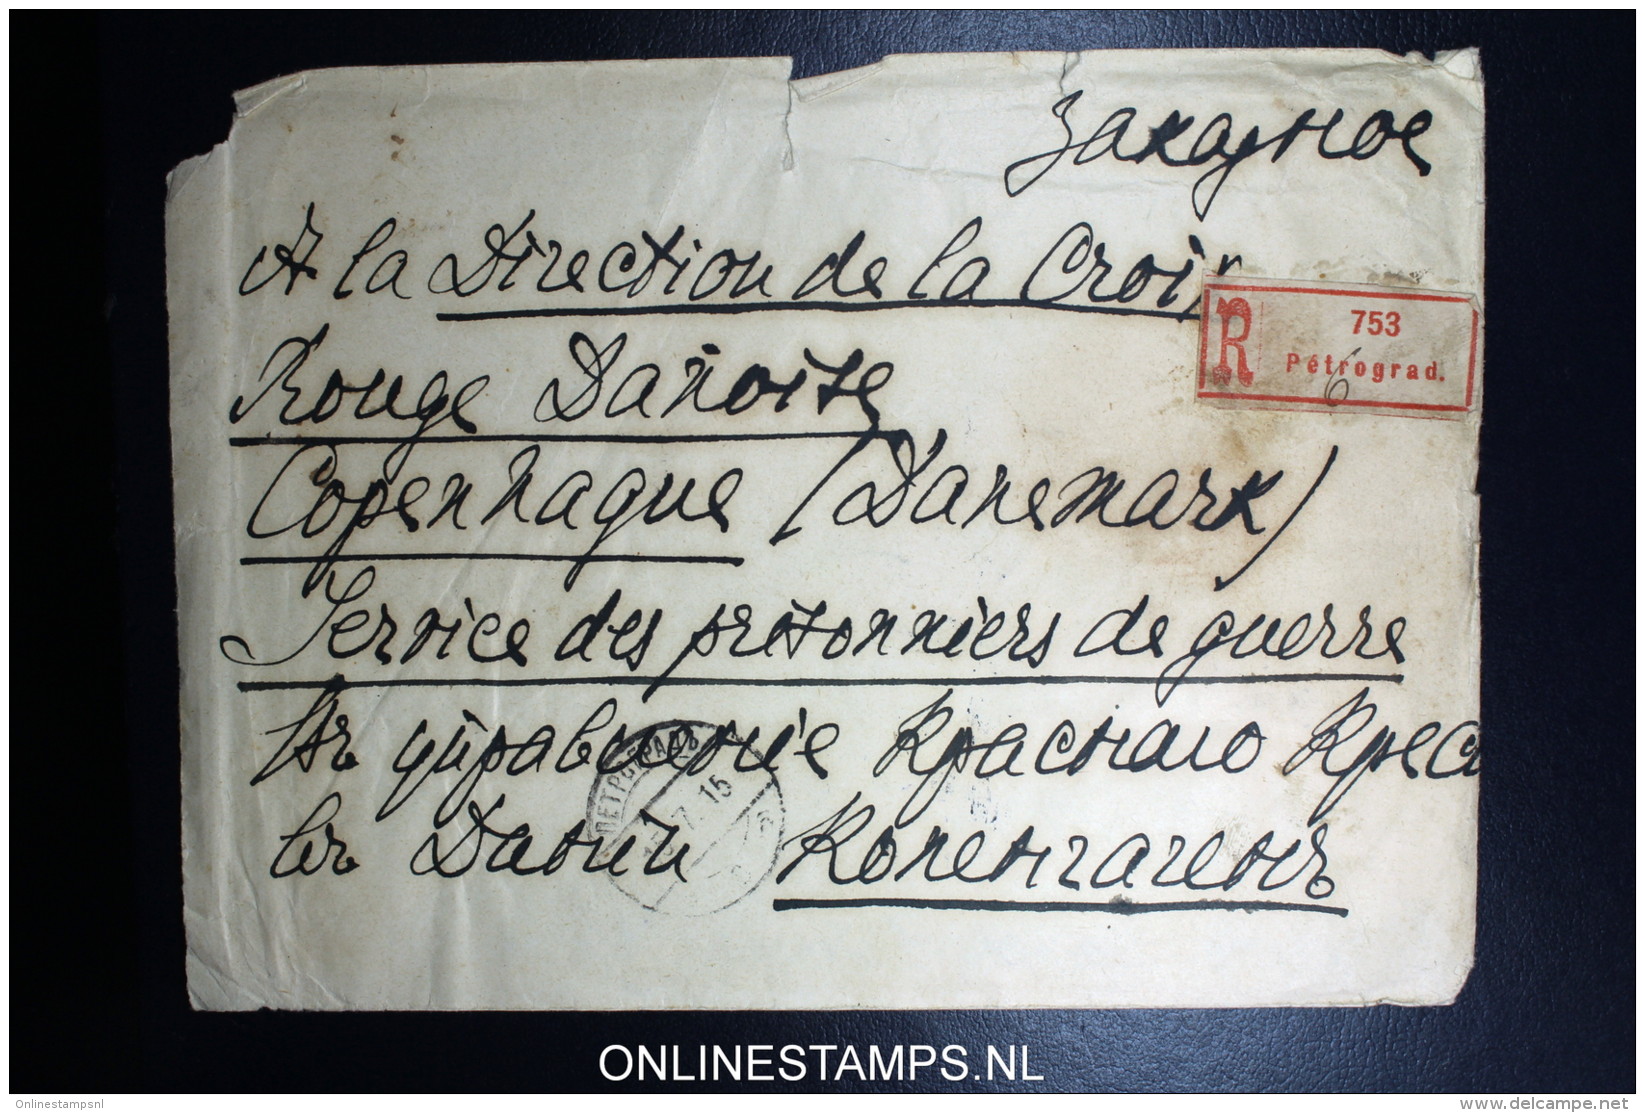 Заказное
A la Direction de la Croix
R 753
Pétrograd.
6
Rouge Danoise
Copenhague (Danemark)
Service des prisonniers de guerre
Въ управленіе Краснаго Крес
ПЕТРОГРАДЪ
7.15
въ Даніи Копенгагенъ
ONLINESTAMPS.NL
Onlinestampsnl
www.delcampe.net